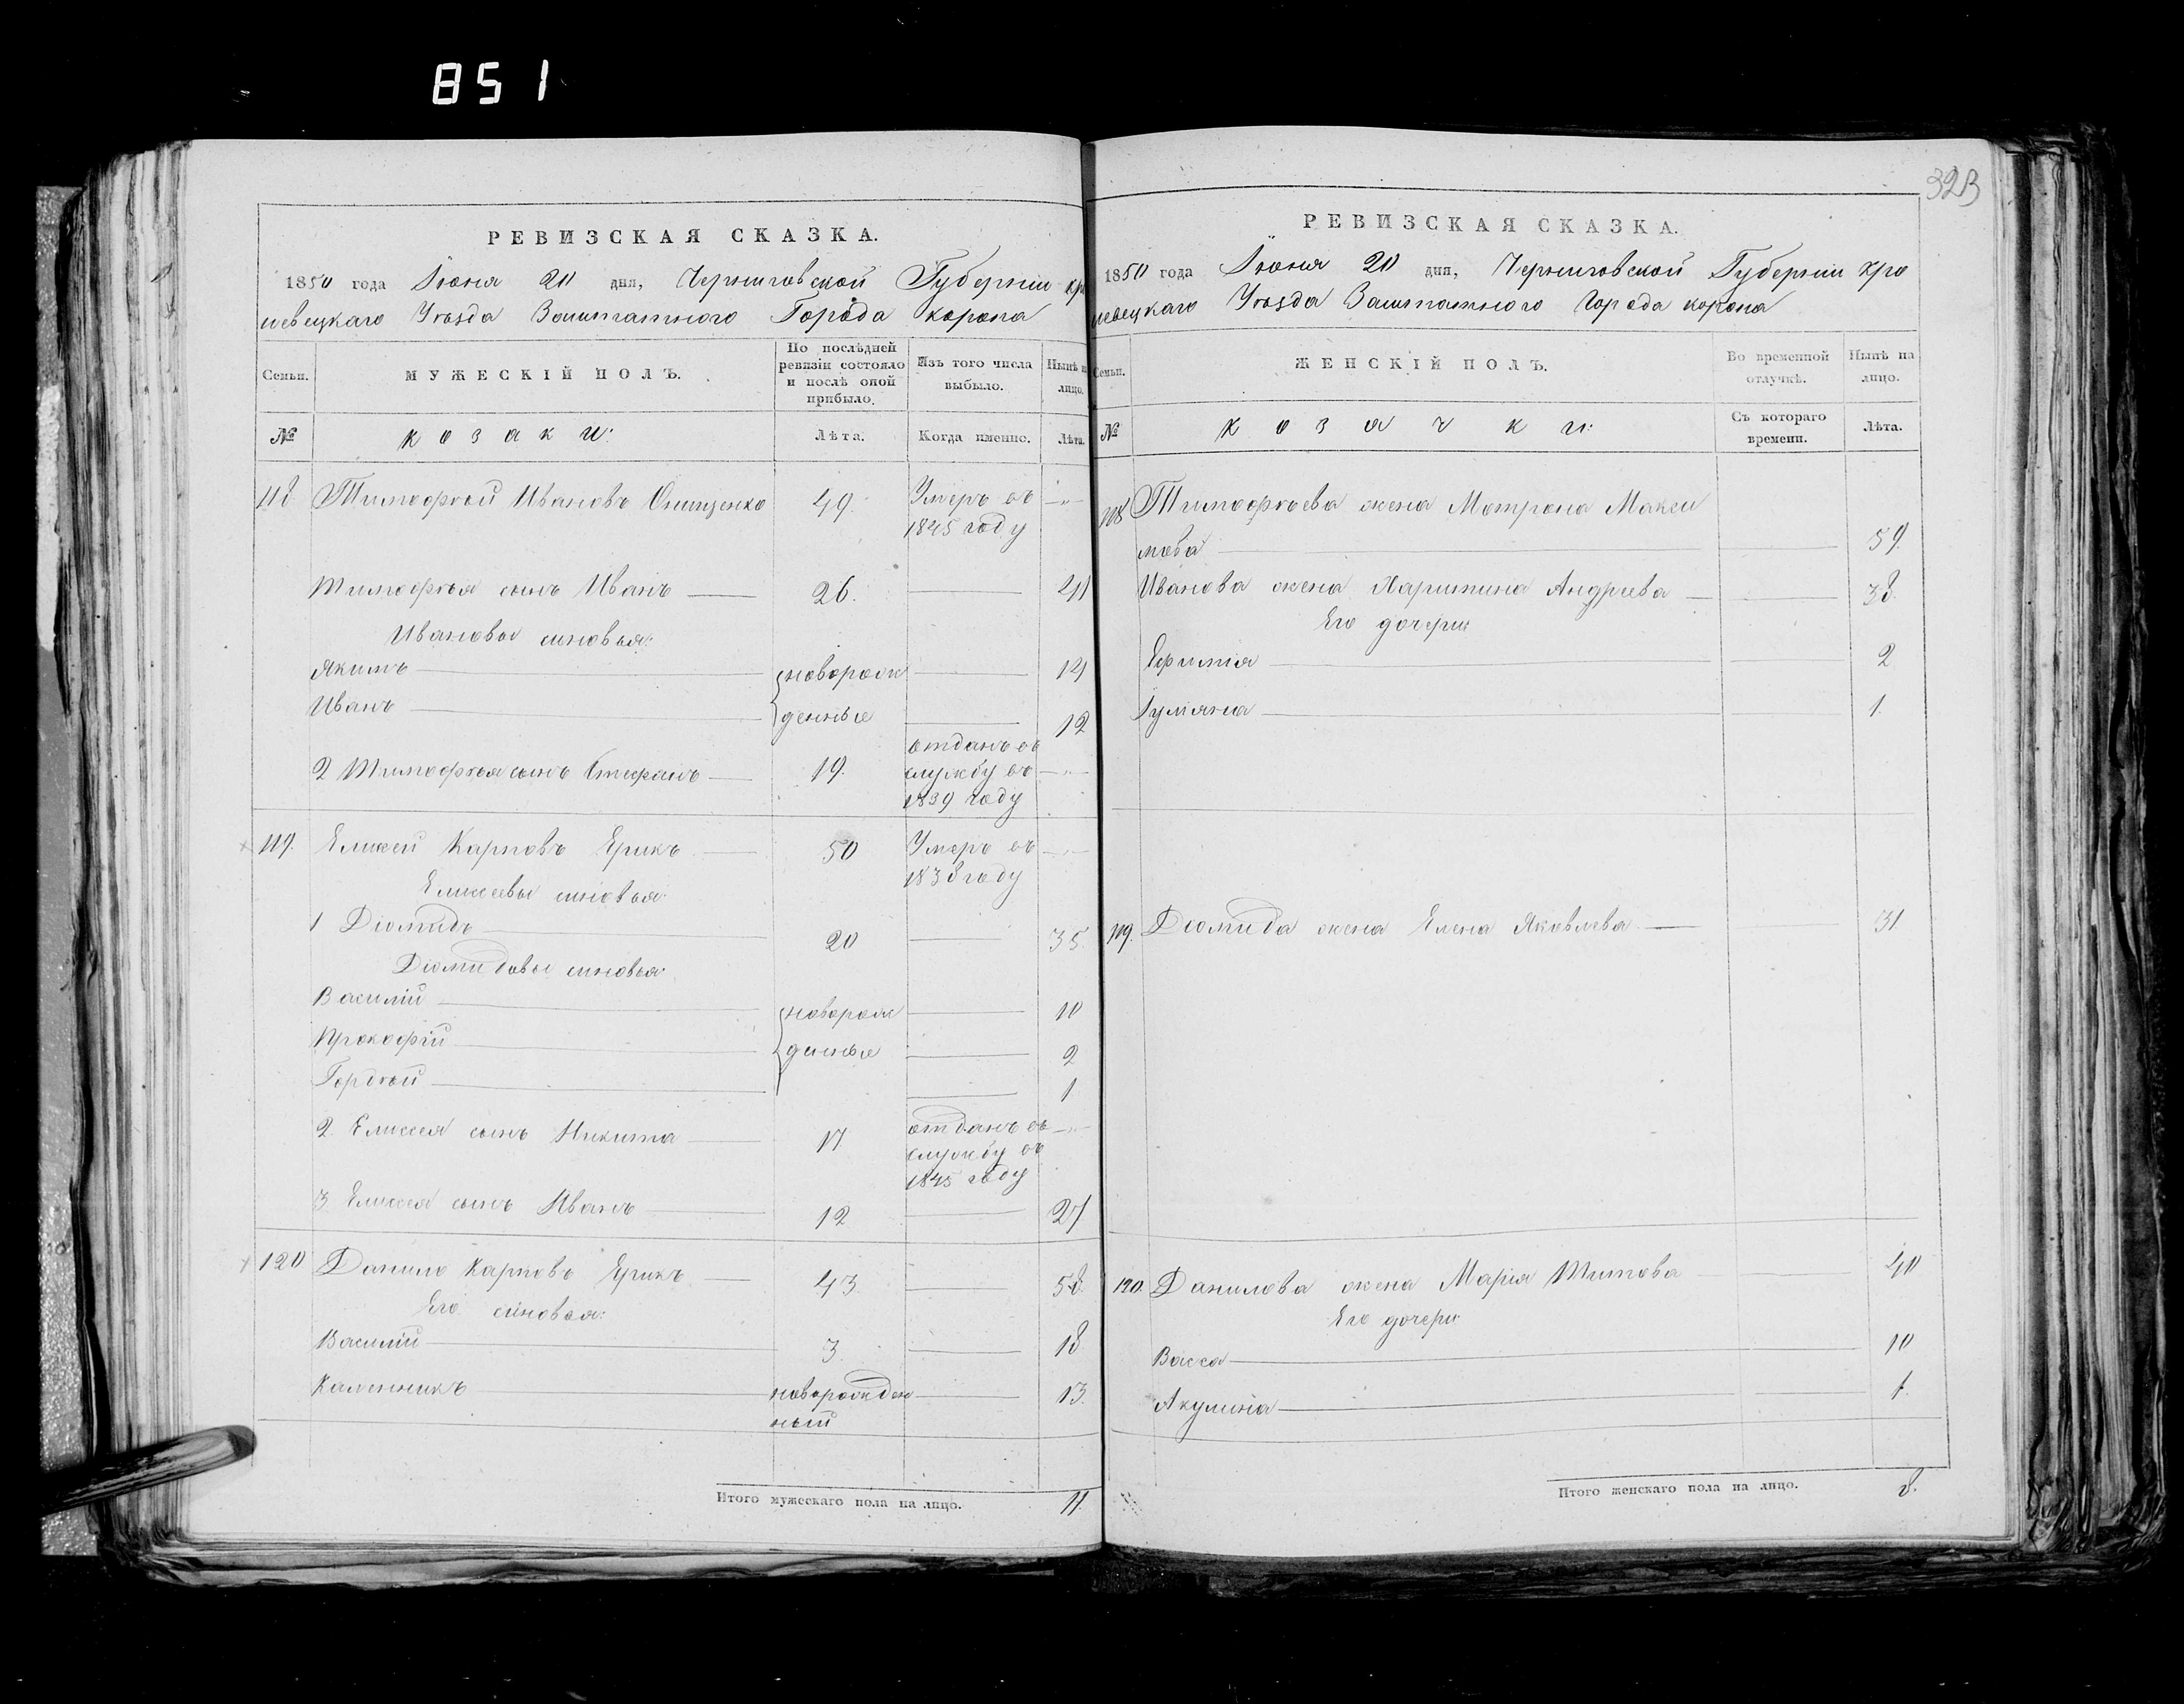 851
323
РЕВИЗСКАЯ СКАЗКА.
1850 года Іюня 20 дня, Черниговской Губерніи кро
левецкаго Уѣзда Заштатнаго Города коропа
Семьи. МУЖЕСКІЙ ПОЛЪ. По послѣдней ревизіи состояло и послѣ оной прибыло. Изъ того числа выбыло. Нынѣ на лицо.
№ козаки: Лѣта. Когда именно. Лѣта.
118 Тимофѣй Ивановъ Онищенко 49. Умеръ въ —„—
1845 году
Тимофѣя сынъ Иванъ 26. 41
Ивановы сыновья:
Якимъ новорож 14
Иванъ денные 12
2 Тимофѣя сынъ Стефанъ 19. отданъ въ
службу въ —„—
1839 году
119. Елисей Карповъ Ерикъ 50 Умеръ въ —„—
1838 году
Елисеевы сыновья:
1 Діомидъ 20 35.
Діомидовы сыновья:
Василій новорож 10
Прокофій денные 2
Гордѣй 1
2. Елисея сынъ Никита 17 отданъ въ —„—
службу въ
1845 году
3 Елисея сынъ Иванъ 12 27
120 Данило Карповъ Ерикъ 43. 58.
Его сыновья:
Василій 3. 18
Каленникъ новорожден 13.
ный
Итого мужескаго пола на лицо. 11.
РЕВИЗСКАЯ СКАЗКА.
1850 года Іюня 20 дня, Черниговской Губерніи кро
левецкаго Уѣзда Заштатного Города коропа
Семьи. ЖЕНСКІЙ ПОЛЪ. Во временной отлучкѣ. Нынѣ на лицо.
№ козачки: Съ котораго времени. Лѣта.
118 Тимофѣева жена Матрона Макси
мова 59.
Иванова жена Харитина Андреева 38.
Его дочери:
Ефимія 2
Іуліяна 1.
119. Діомида жена Елена Яковлева 31.
120. Данилова жена Марія Титова 40
Его дочери:
Васса 10
Акулина 1.
Итого женскаго пола на лицо. 8.